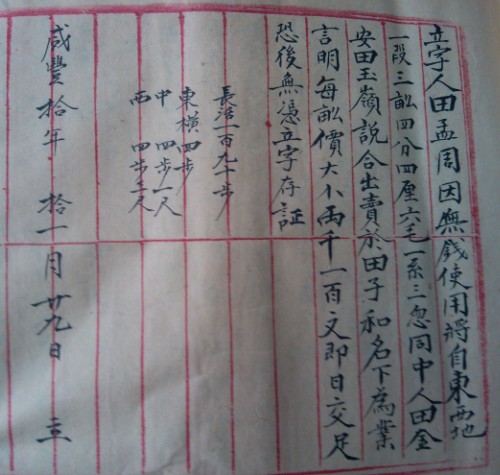 立字人田孟周因無錢使用將自東西地
一段三畝四分四厘六毛一系三忽同中人田金
安田玉嶺說合出賣於田子和名下為業
言明每畝價大小兩千一百文即日交足
恐後無憑立字存証
長活一百九十步
東橫四步
中 四步一尺
西 四步三尺
咸豐拾年 拾一月廿九日 立